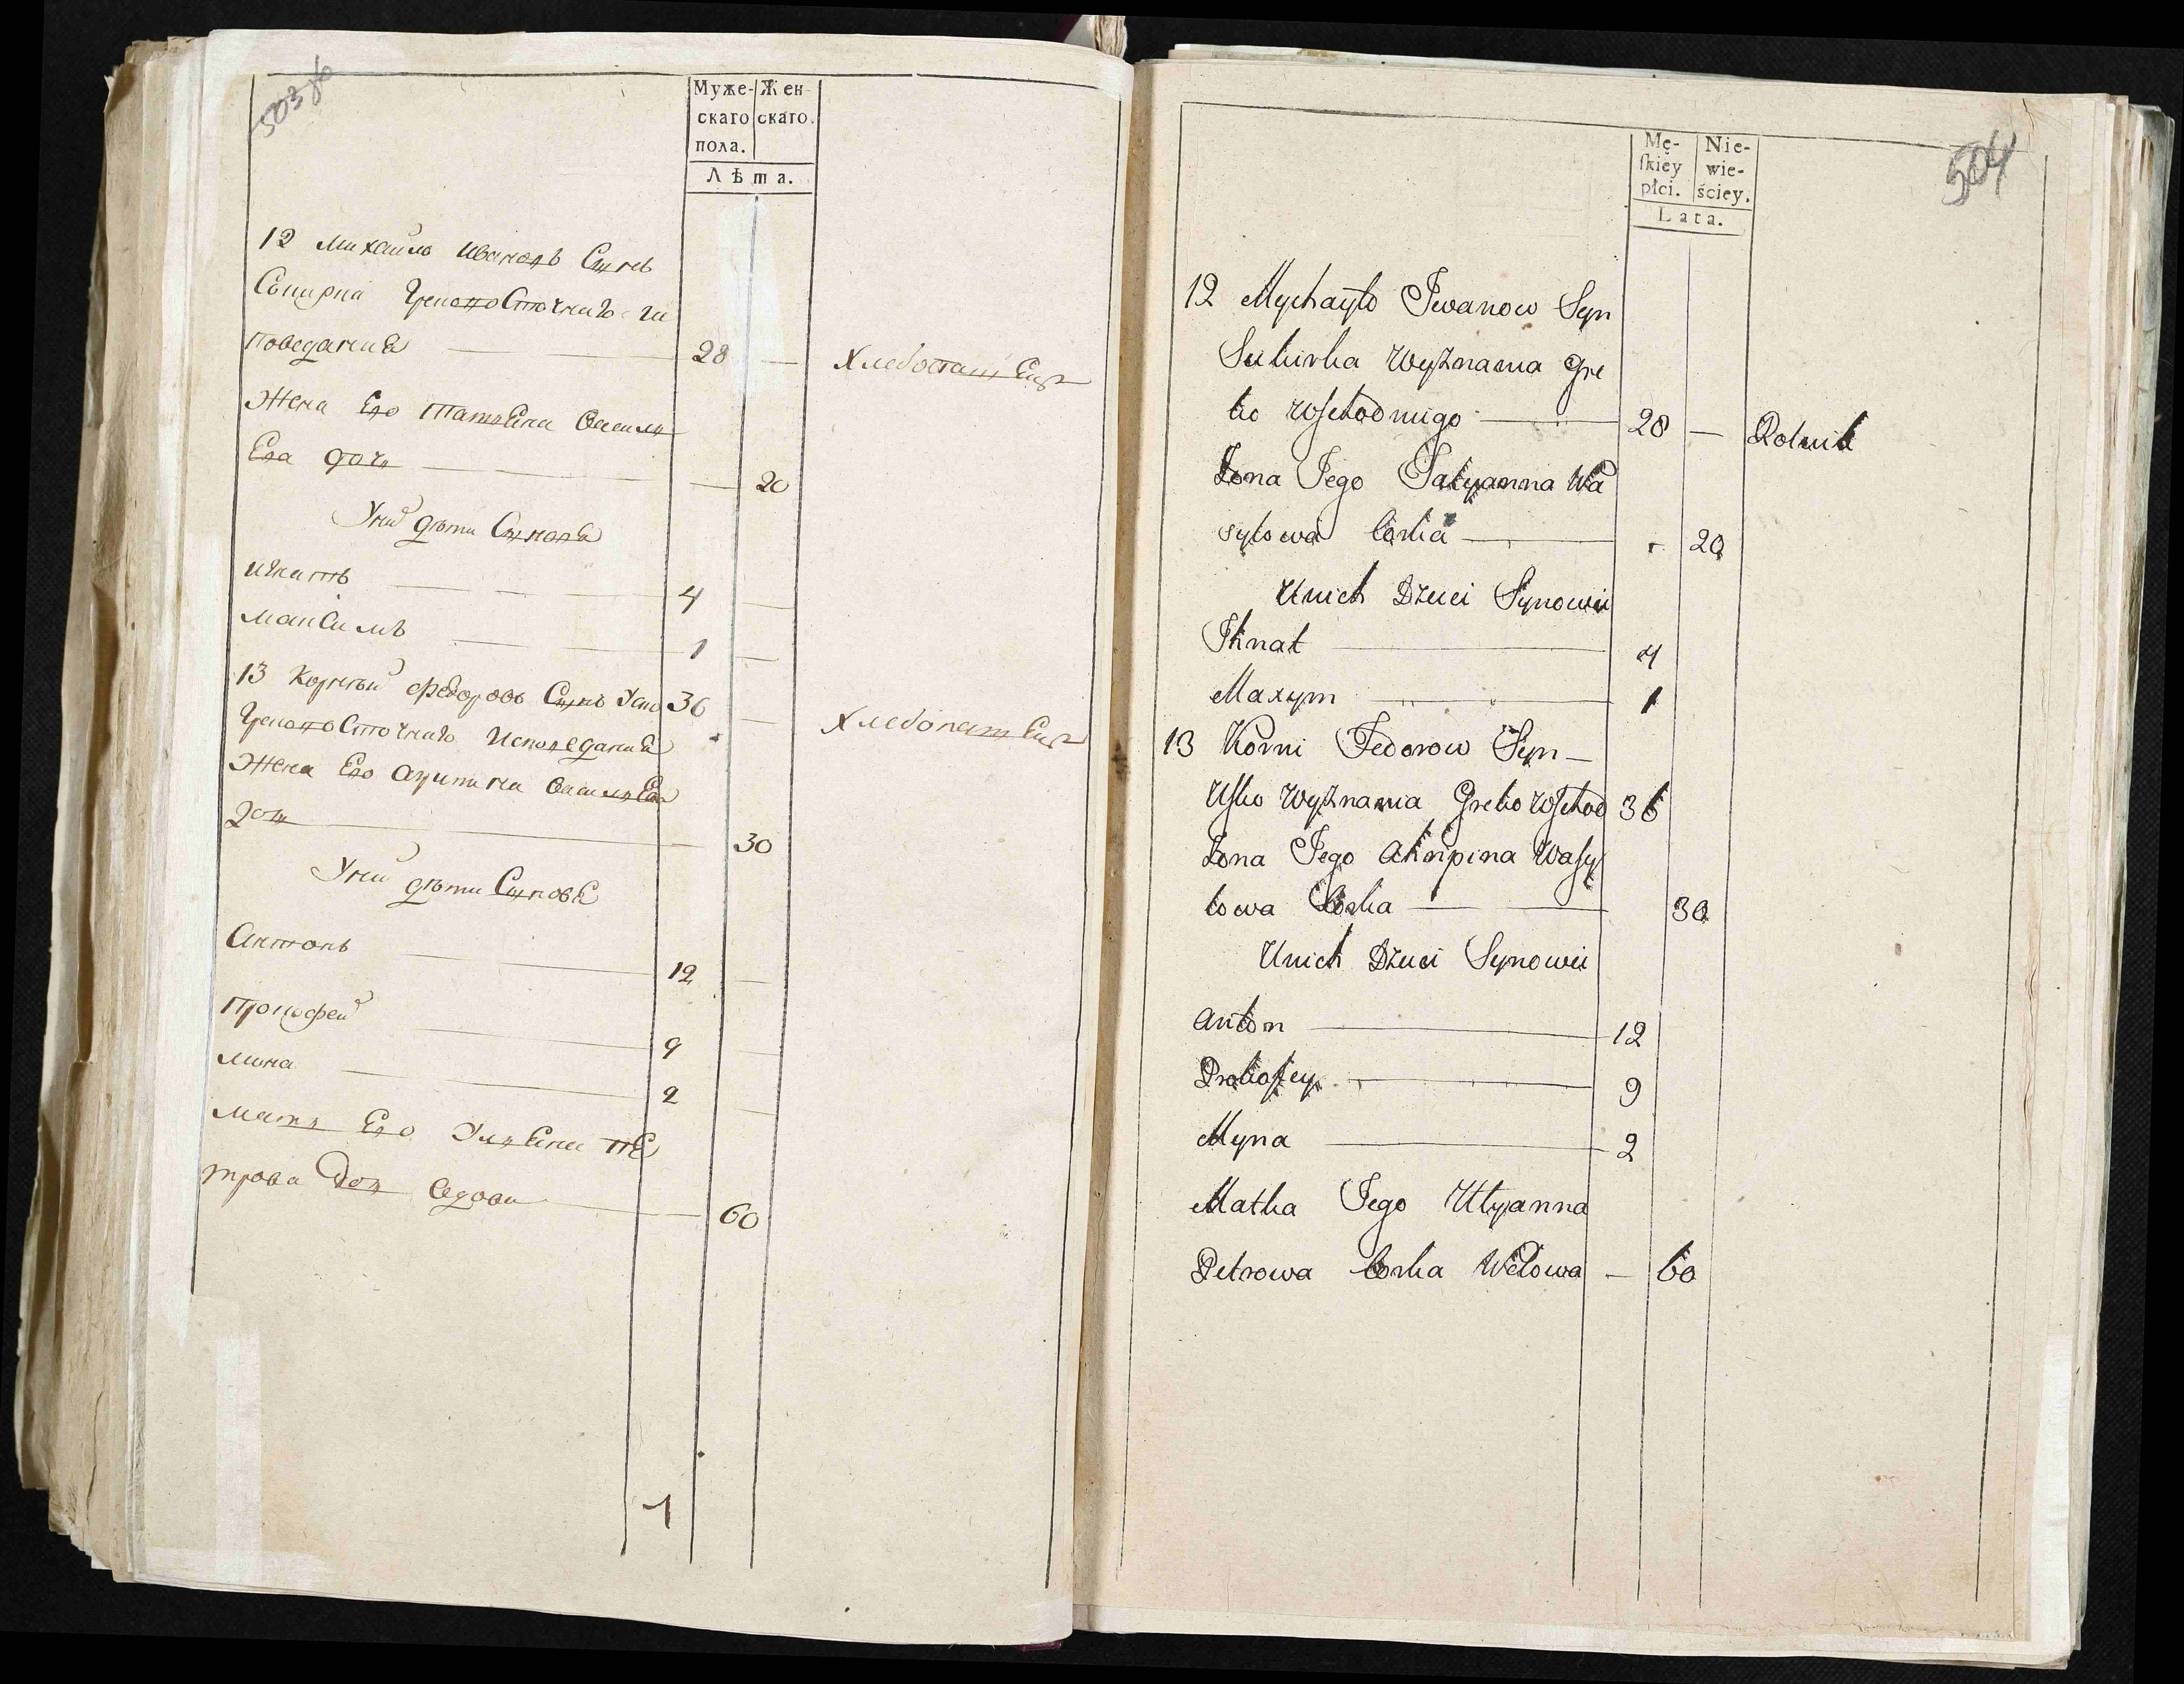 503 об
Муже-
скаго
пола.
Жен
скаго.
Лѣта.
12 Михайло Ивановъ Сынъ
Сокирка Грековосточнаго-ис
поведания 28 — Хлебопашецъ
Жена Его Татьяна Василь
Ева доч — 20
У них дѣти Сыновя
Игнатъ 4 —
Максимъ 1 —
13 Корнѣй Федоровъ Сынъ Уско 36 — Хлебопашецъ
Грековосточнаго Исповедания
Жена Его Агрипина Васильева
доч — 30
У них дѣти Сынове
Антонъ 12 —
Прокофей 9 —
Мина 2 —
Мать Его Ульяна Пе
трова Доч Вдова — 60
1
504
Mę-
skiey
płci.
Nie-
wie-
ściey.
Lata.
12 Mychayło Iwanow Syn
Sukirka Wyznania Gre
ko Wschodniego 28 — Rolnik
Żona Iego Tatyanna Wa
syłowa Corka - 20
Unich Dzieci Synowie
Ihnat 4
Maxym 1
13 Korni Fedorow Syn —
Usko Wyznania Greko Wschod 36
Żona Iego Ahripina Wasy
łowa Corka 30
Unich Dzieci Synowie
Anton 12
Prokofey 9
Myna 2
Matka Iego Ulyanna
Petrowa Corka Wdowa — 60